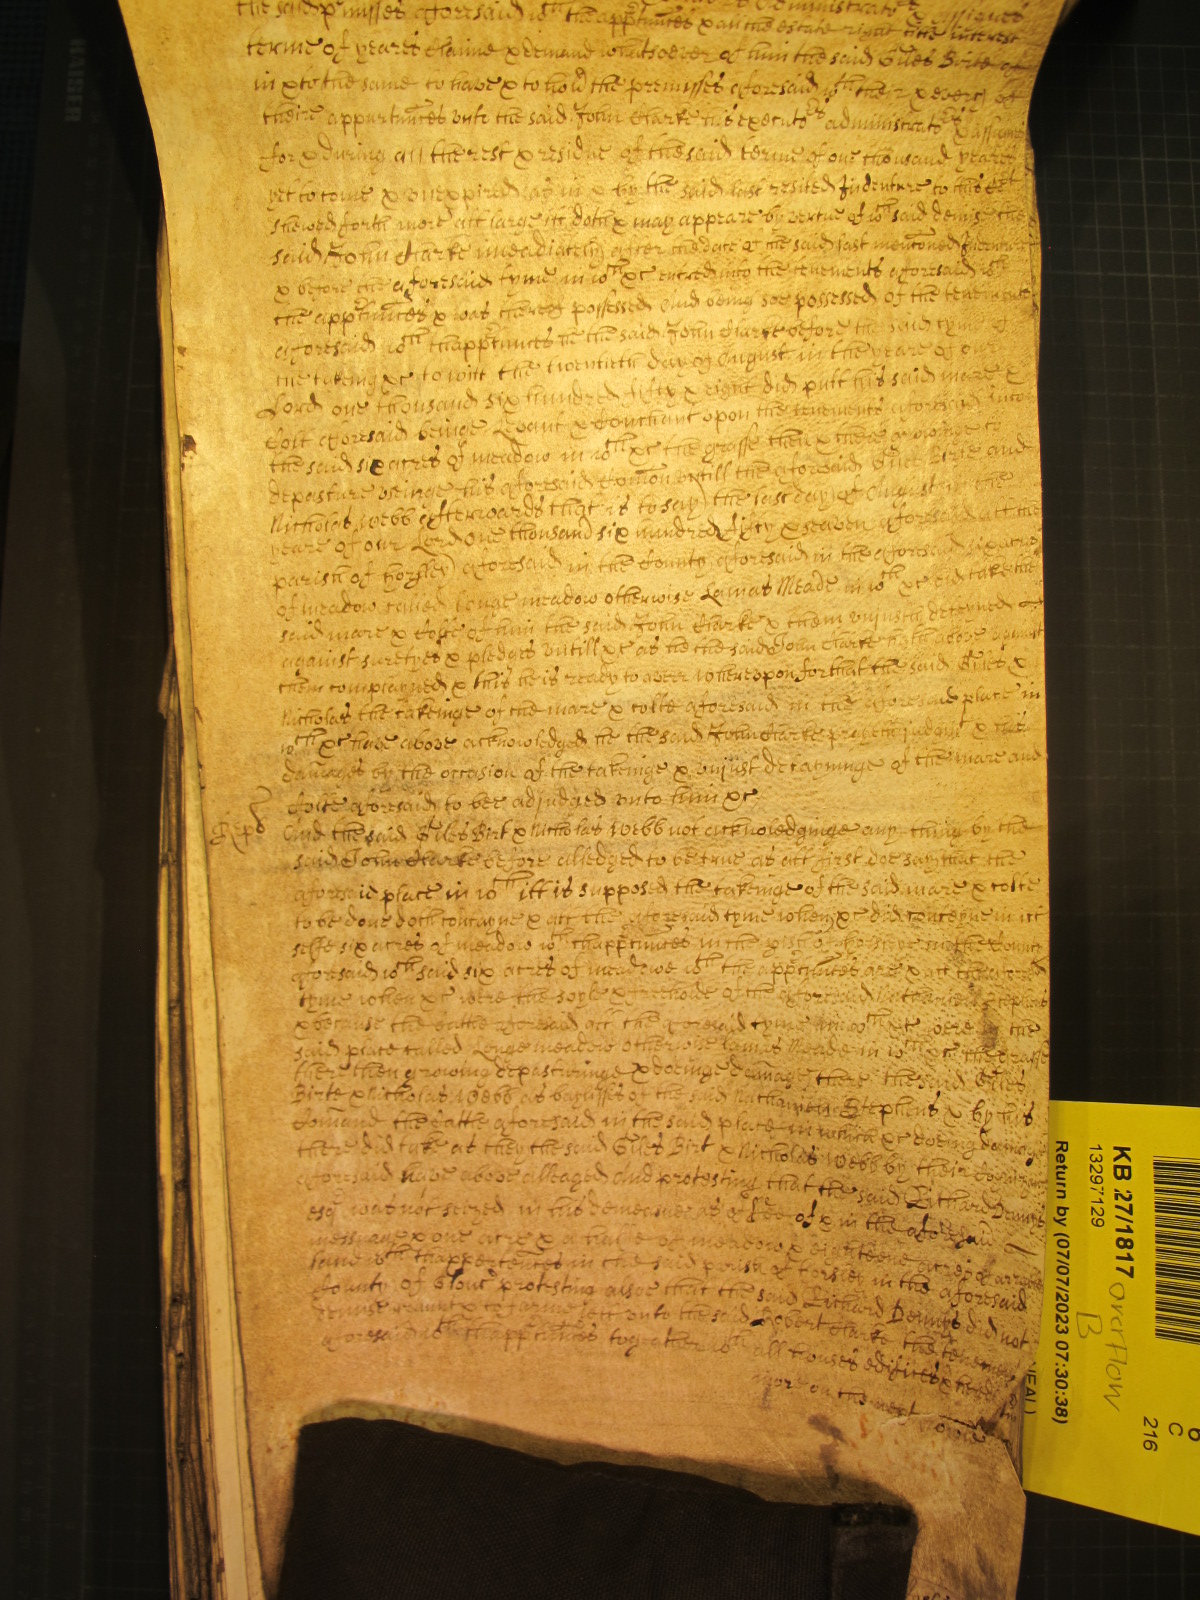 the said p'misses aforesaid wth the appten'ces & all the estate right title interest
terme of yeares Claime & demand whatsoever of him the said Giles Birte of
in & to the same to have & to hold the premisses aforesaid wth their & every of
theire appurten'ces unto the said John Clarke his executors administrators & assignes
for & during all the rest & residue of the said terme of one thousand yeares
yet to come & unexpired as in & by the said last resited Indenture to this Cot
shewed forth more att large itt doth & may appeare by vertue of wch said demise the
said John Clarke imediately after the date of the said last mentoned Indenture
& before the aforesaid tyme in wch &c entred into the tenements aforesaid wth
the appten'ces & was thereof possessed And being soe possessed of the tenements
aforesaid wth thappten'ces he the said John Clarke before the said tyme of
the taking &c to witt the twentieth day of August in the yeare of our
Lord one thousand six hundred fifty & eight did putt his said mare &
Colt aforesaid beinge Levant & Couchant upon the tenements aforesaid into
the said six acres of meadow in wch &c the grasse then & there growinge to
depasture useinge his aforesaid Com'on untill the aforesaid Giles Birte and
Nicholas Webb afterwards that is to say the last day of August in the
yeare of our Lord one thousand six hundred fifty & seaven aforesaid att the
parish of Horsley aforesaid in the County aforesaid in the aforesaid six acres
of meadow called Longe meadow otherwise Lamas Meade in wch &c did take the
said mare & Colte of him the said John Clarke & them unjustly deteyned
against suretyes & pledges untill &c as he the said John Clarke hath above against
them complayned & this he is ready to averr whereupon for that the said Giles &
Nicholas the takeinge of the mare & colte aforesaid in the aforesaid place in
wch &c have above acknowledged he the said John Clarke prayeth judgmt & his
damages by the occasion of the takeinge & unjust detayninge of the mare and
Colte aforesaid to bee adjudged unto him &c
And the said Giles Birt & Nicholas Webb not acknoledginge any thing by the
said John Clarke before alledged to be true as att first doe say that the
aforesaid place in wch itt is supposed the takeinge of the said mare & colte
to be done doth contayne & att the aforesaid tyme when &c did conteyne in itt
selfe six acres of meadow wth thappten'ces in the p'ish of Horsley in the County
aforesaid wch said six acres of meadowe wth the appten'ces are & att the aforesaid
tyme when &c were the soyle & freehold of the aforesaid Nathaniell Stephens
& because the cattle aforesaid att the aforesaid tyme in wch &c were in the
said place called Longe meadow otherwise Lamas Meade in wch &c the grasse
there then growing depasturinge & doeinge damage there the said Giles
Birte & Nicholas Webb as bayliffes of the said Nathaniell Stephens & by his
Comand the cattle aforesaid in the said place in which &c doeing damage
there did take as they the said Giles Birt & Nicholas Webb by their
aforesaid have above alleaged And protesting that the said Richard Dennis
esqr was not seized in his demeasne as of fee of & in the aforesaid
messuage & one acre & a halfe of meadow & eighteene acres of arrable
land wth thappertenc'es in the said parish of Horsley in the aforesaid
County of Glouc' protesting alsoe that the said Richard Dennis did not
demise graunt & to farme lett unto the said Robert Clarke the tenements
aforesaid wth thappten'ces together wth all houses edifices
more on the next
KB 27/1817
13297129
Return by (07/07/2023 07:30:38)
overflow
B
C
216
KAISER